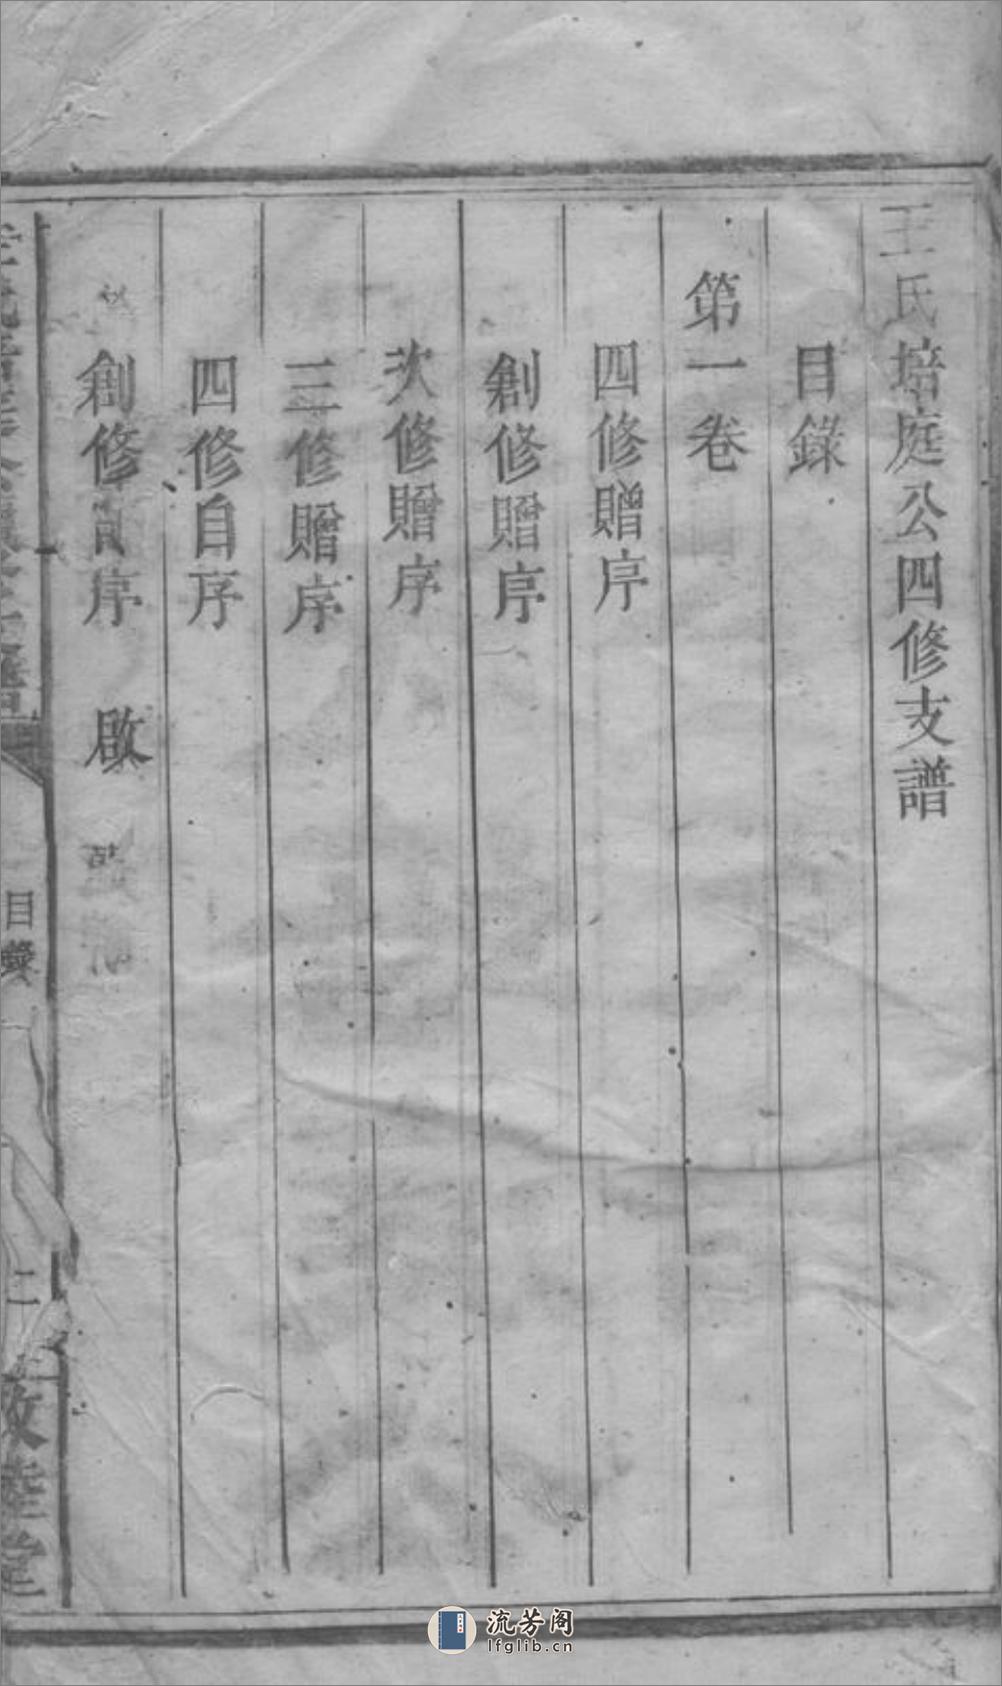 王氏培庭公四修支譜
目錄
第一卷
四修贈序
創修贈序
次修贈序
三修贈序
四修自序
創修自序 啟
目錄
二
敦睦堂
流芳阁
lfglib.cn